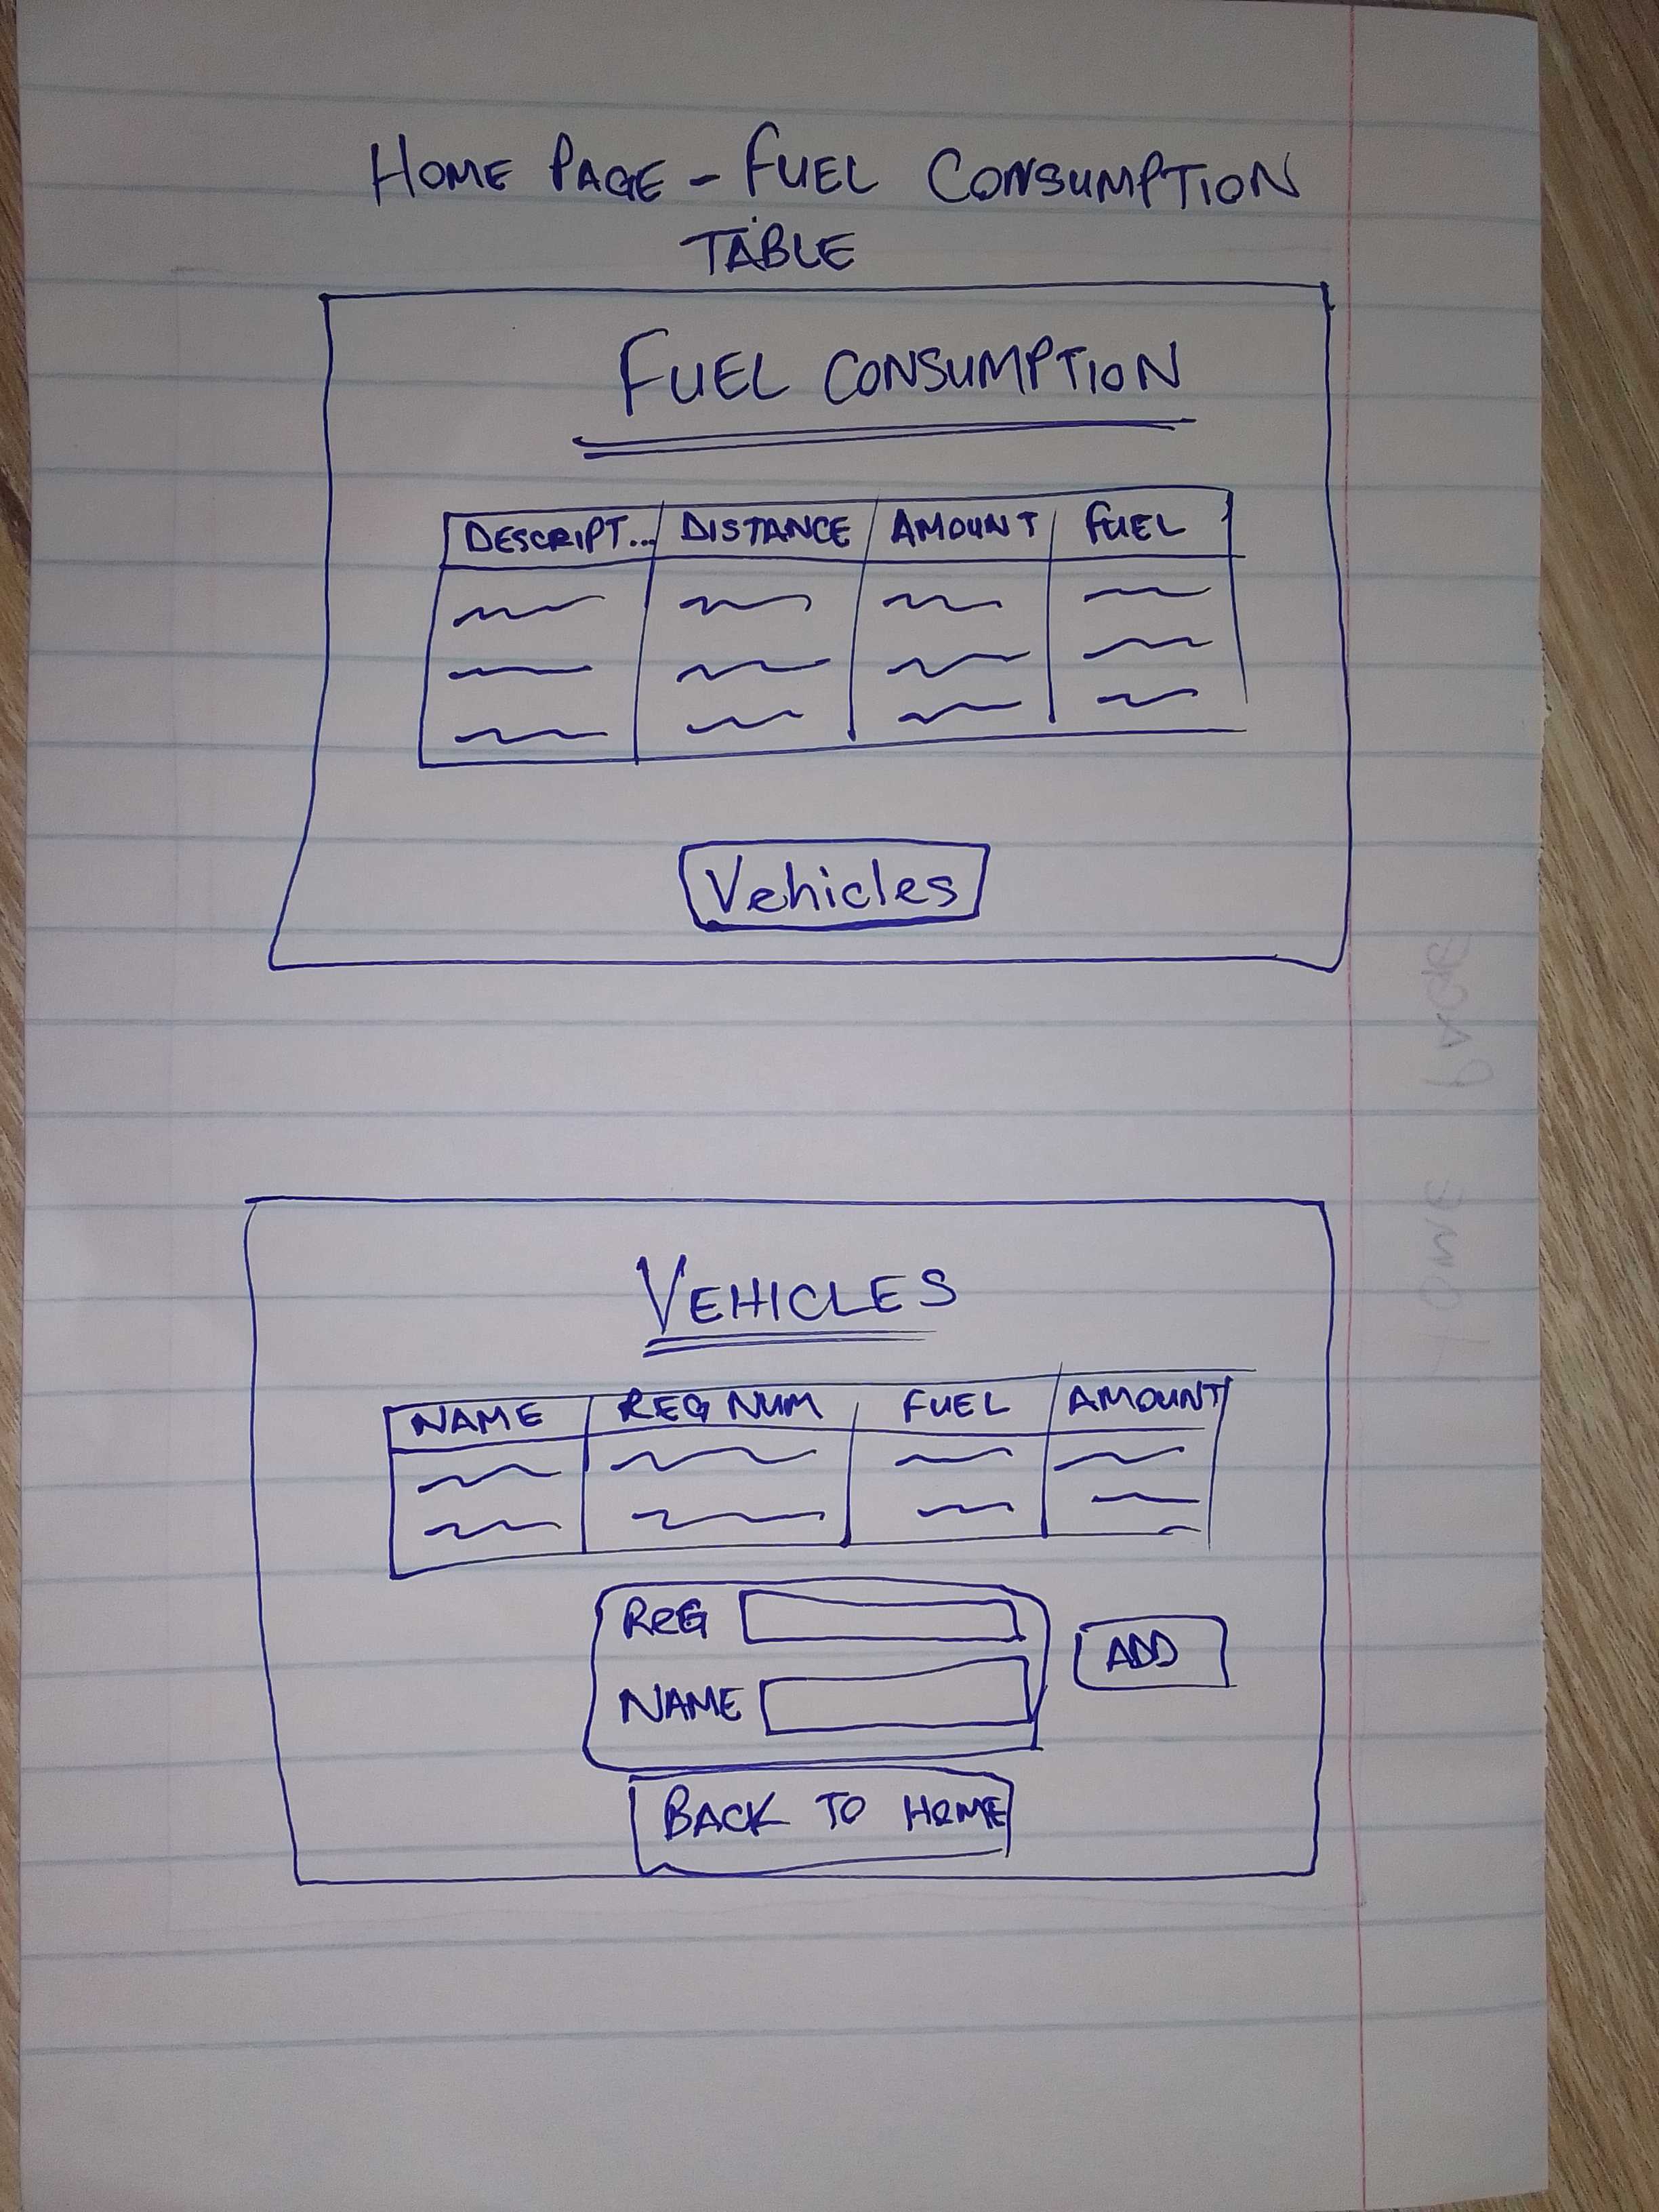 HOME PAGE - FUEL CONSUMPTION
TABLE
FUEL CONSUMPTION
DESCRIPT... DISTANCE AMOUNT FUEL
Vehicles
VEHICLES
NAME REG NUM FUEL AMOUNT
REG
ADD
NAME
BACK TO HOME